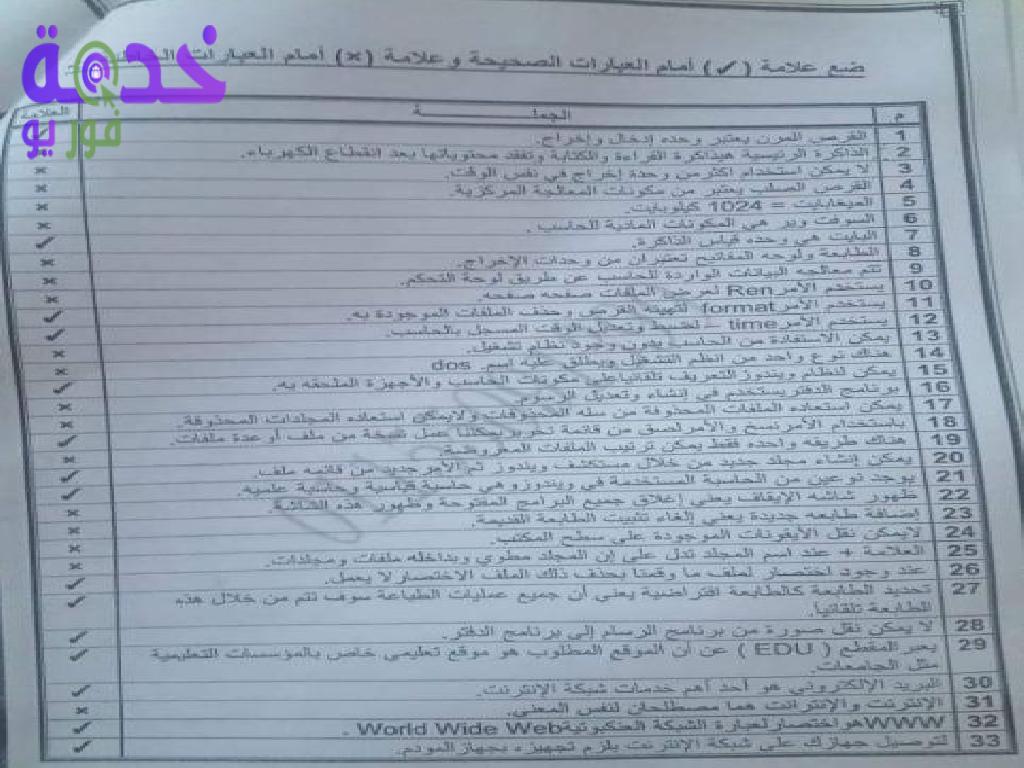 خدمة
فور يو
ضع علامة (✓) أمام العبارات الصحيحة وعلامة (×) أمام العبارات
م الجملة العلامة
1 القرص المرن يعتبر وحده إدخال وإخراج.
2 الذاكرة الرئيسية هيذاكرة القراءة والكتابة وتفقد محتوياتها بعد انقطاع الكهرباء.
3 لا يمكن استخدام أكثرمن وحدة إخراج في نفس الوقت. ×
4 القرص الصلب يعتبر من مكونات المعالجة المركزية. ×
5 الميغابايت = 1024 كيلوبايت. ×
6 السوفت وير هي المكونات المادية للحاسب. ×
7 البايت هي وحده قياس الذاكرة. ✓
8 الطابعة ولوحه المفاتيح تعتبران من وحدات الإخراج. ×
9 تتم معالجه البيانات الواردة للحاسب عن طريق لوحة التحكم. ×
10 يستخدم الأمر Ren لعرض الملفات صفحه صفحه. ×
11 يستخدم الأمر format لتهيئة القرص وحذف الملفات الموجودة به. ✓
12 يستخدم الأمر time لضبط وتعديل الوقت المسجل بالحاسب. ✓
13 يمكن الاستفادة من الحاسب بدون وجود نظام تشغيل. ×
14 هناك نوع واحد من انظم التشغيل ويطلق عليه اسم dos ×
15 يمكن لنظام ويندوز التعريف تلقائيا على مكونات الحاسب والأجهزة الملحقه به. ✓
16 برنامج الدفتر يستخدم في إنشاء وتعديل الرسوم. ×
17 يمكن استعاده الملفات المحذوفة من سله المحذوفات ولايمكن استعاده المجلدات المحذوفة. ×
18 باستخدام الأمر نسخ والأمر لصق من قائمة تحرير يمكن عمل نسخة من ملف أو عدة ملفات. ✓
19 هناك طريقه واحده فقط يمكن ترتيب الملفات المعروضة. ×
20 يمكن إنشاء مجلد جديد من خلال مستكشف ويندوز ثم الأمر جديد من قائمه ملف. ✓
21 يوجد نوعين من الحاسبة المستخدمة في ويندوز وهي حاسبة قياسية وحاسبة علميه. ✓
22 ظهور شاشه الإيقاف يعني إغلاق جميع البرامج المفتوحة وظهور هذه الشاشة. ×
23 إضافة طابعه جديدة يعني إلغاء تثبيت الطابعة القديمة. ×
24 لايمكن نقل الأيقونات الموجودة على سطح المكتب. ×
25 العلامة + عند اسم المجلد تدل على إن المجلد مطوي وبداخله ملفات ومجلدات. ×
26 عند وجود اختصار لملف ما وقمنا بحذف ذلك الملف الاختصار لا يعمل. ✓
27 تحديد الطابعة كالطابعة افتراضية يعني أن جميع عمليات الطباعة سوف تتم من خلال هذه ✓
الطابعة تلقائيا.
28 لا يمكن نقل صورة من برنامج الرسام إلى برنامج الدفتر. ✓
29 يعبر المقطع ( EDU ) عن أن الموقع المطلوب هو موقع تعليمي خاص بالمؤسسات التعليمية ✓
مثل الجامعات.
30 البريد الإلكتروني هو أحد أهم خدمات شبكة الإنترنت. ✓
31 الإنترنت والإنترانت هما مصطلحان لنفس المعنى. ×
32 WWW هو اختصار لعبارة الشبكة العنكبوتية World Wide Web . ✓
33 لتوصيل جهازك على شبكة الإنترنت يلزم تجهيزه بجهاز المودم. ✓